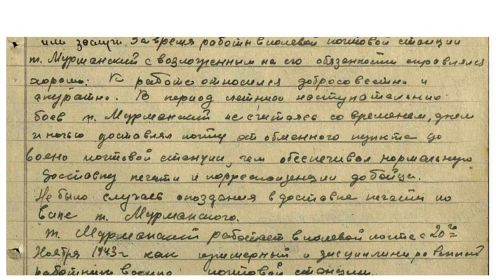 или заслуги. За время работы в полевой почтовой станции
т. Мурманский с возложенными на его обязанности справлялся
хорошо. К работе относился добросовестно и
акуратно. В период летнего наступательно
боев т. Мурманский не считаясь со временем, днем
и ночью доставлял почту от обменного пункта до
военно почтовой станции, чем обеспечивал нормальную
доставку печати и корреспонденции до бойца.
Не было случаев опоздания в доставке печати по
вине т. Мурманского.
т. Мурманский работает в полевой почте с 20го
Ноября 1943 г как примерный и дисциплинированный
работник военно почтовой станции